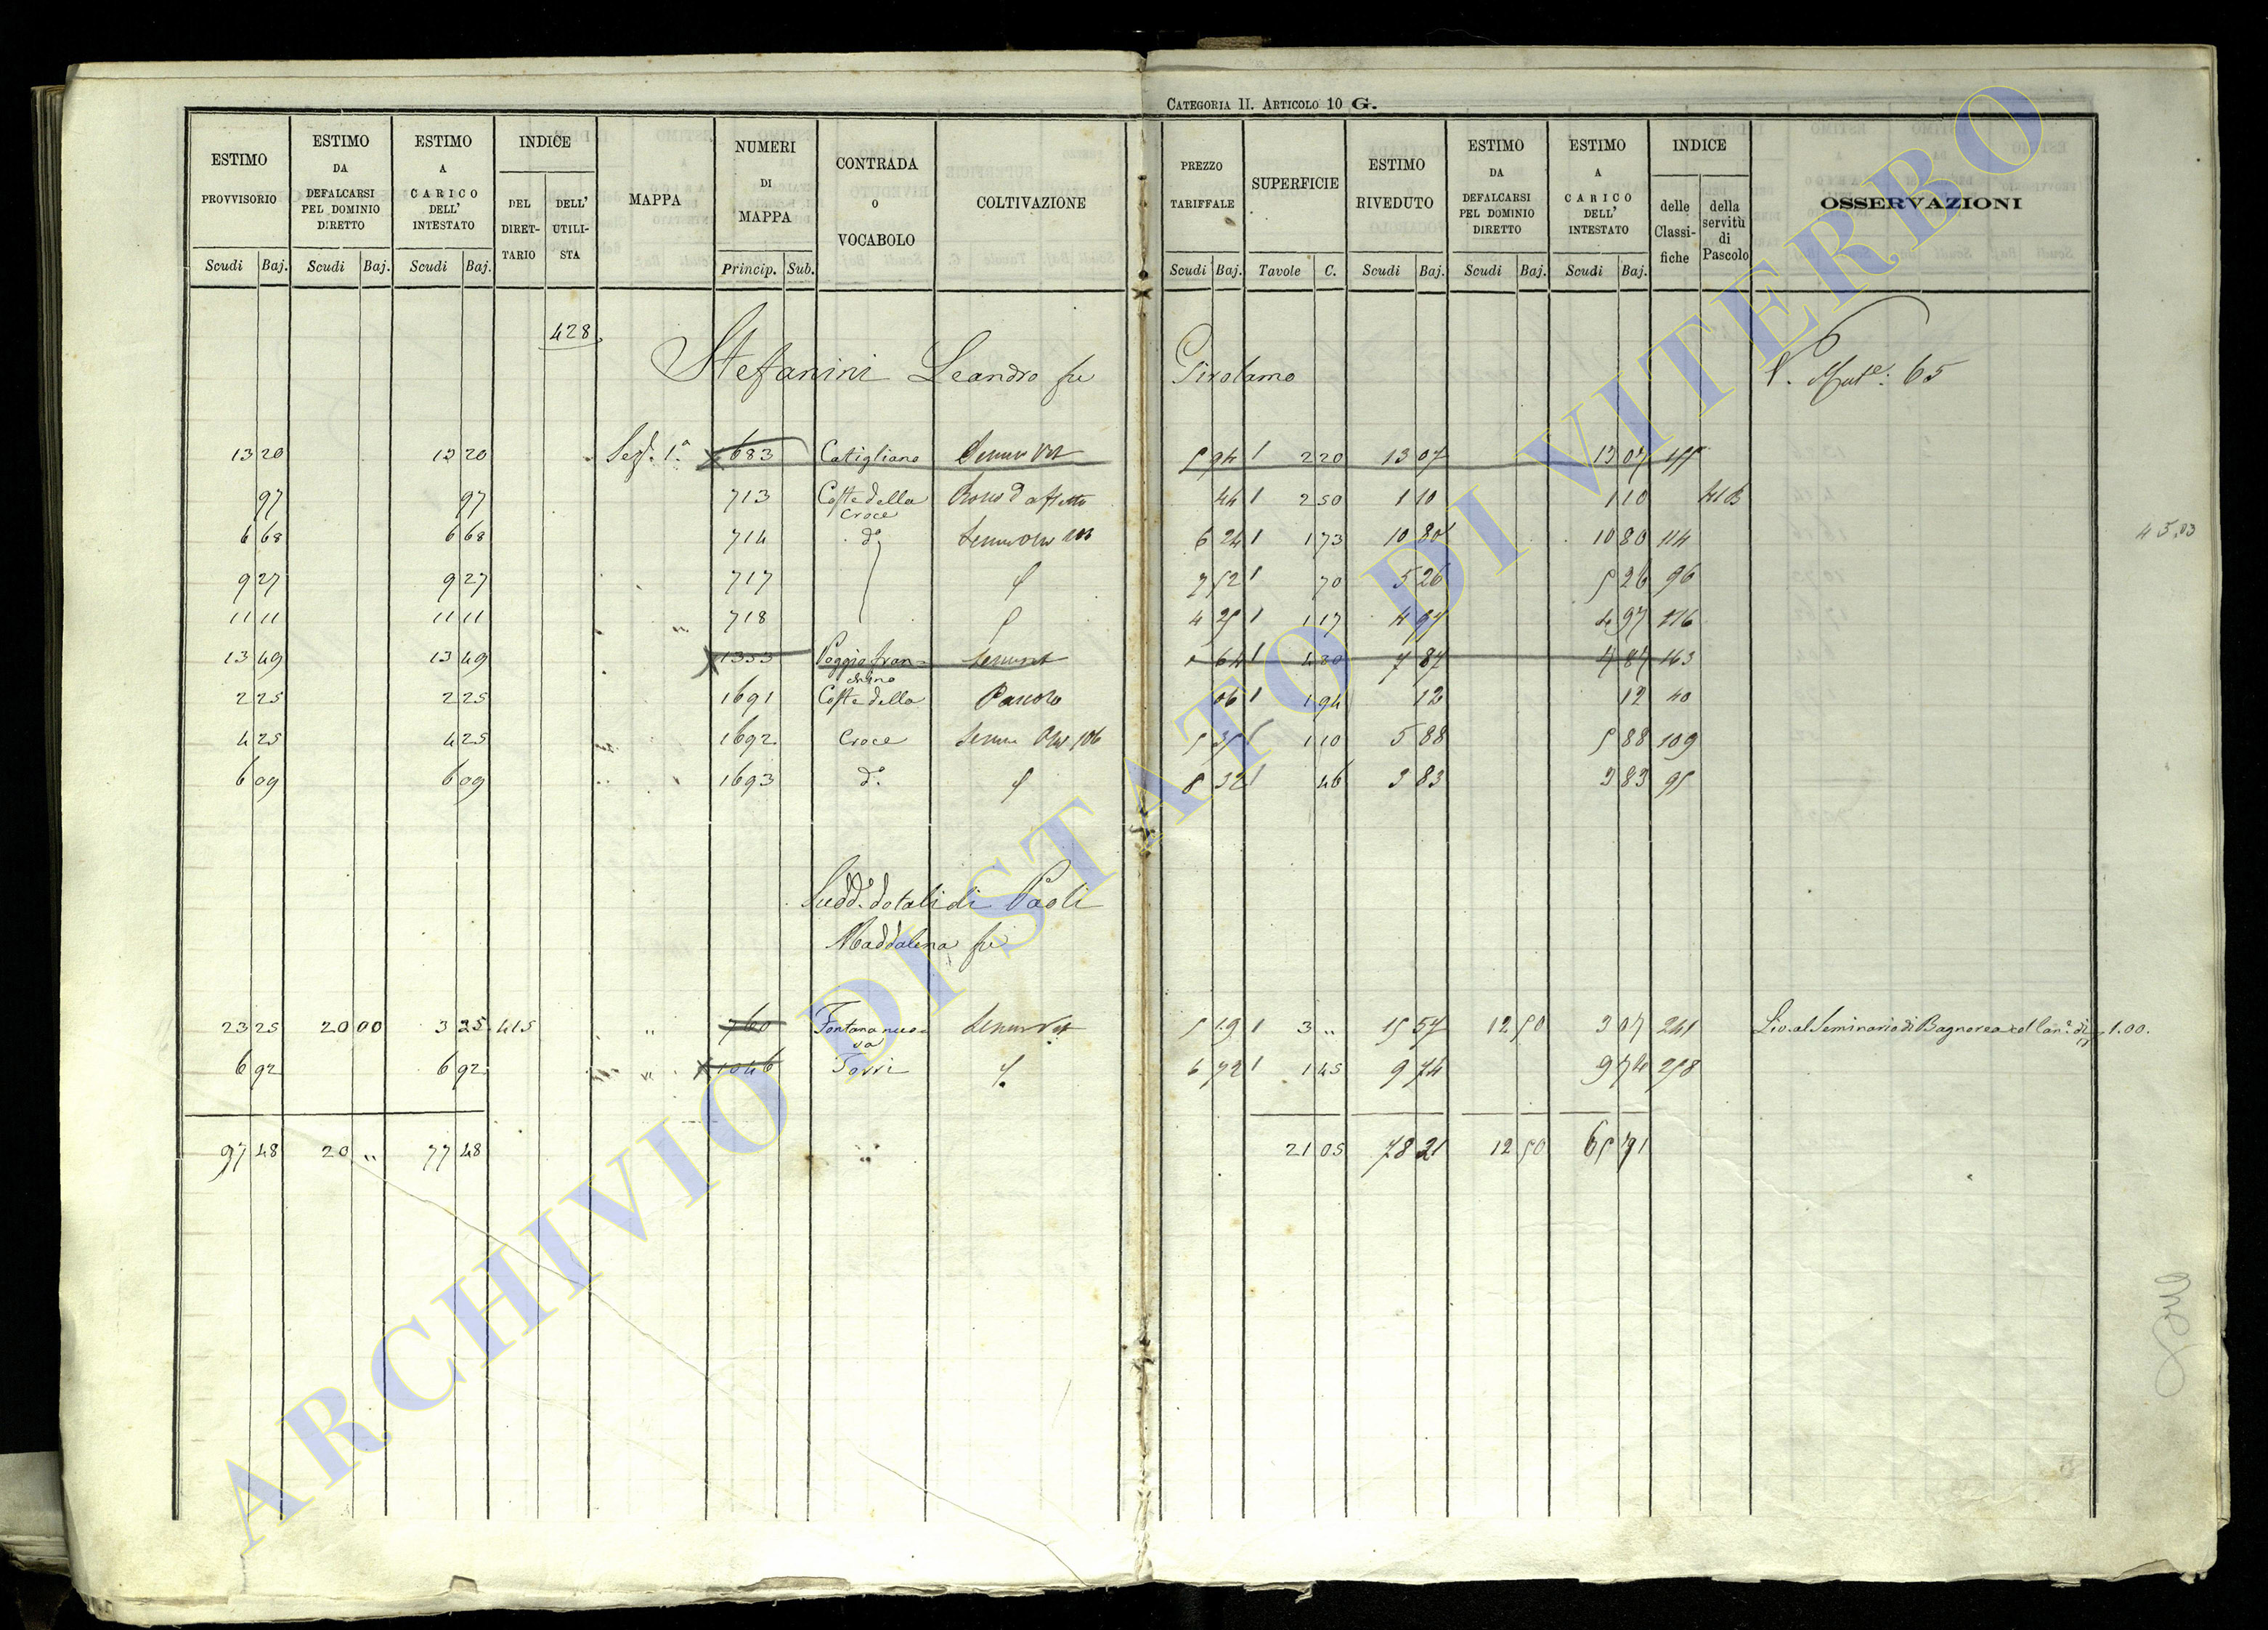 CATEGORIA II. ARTICOLO 10 G.
ESTIMO PROVVISORIO | ESTIMO DA DEFALCARSI PEL DOMINIO DIRETTO | ESTIMO A CARICO DELL' INTESTATO | INDICE | MAPPA | NUMERI DI MAPPA | CONTRADA O VOCABOLO | COLTIVAZIONE | PREZZO TARIFFALE | SUPERFICIE | ESTIMO RIVEDUTO | ESTIMO DA DEFALCARSI PEL DOMINIO DIRETTO | ESTIMO A CARICO DELL' INTESTATO | INDICE | OSSERVAZIONI
DEL DIRETTARIO | DELL' UTILISTA | delle Classifiche | della servitù di Pascolo
Scudi | Baj. | Scudi | Baj. | Scudi | Baj. | Princip. | Sub. | Scudi | Baj. | Tavole | C. | Scudi | Baj. | Scudi | Baj. | Scudi | Baj.
428
Stefanini Leandro fu Girolamo 65
13 20 13 20 1ª 683 Catigliano 5 94 1 2 20 13 07 13 07
97 97 713 Coste della Croce 44 1 2 50 1 10 1 10
6 68 6 68 714 dº 6 24 1 1 73 10 80 10 80 114
45,03
9 27 9 27 717 7 52 1 70 5 26 5 26 96
11 11 11 11 718 4 25 1 1 17 4 97 4 97 116
13 49 13 49 1353 Poggio fran= chino 64 1 4 20 7 87 7 87 163
2 25 2 25 1691 Coste della Pascolo 06 1 1 94 12 12 40
4 25 4 25 1692 Croce 5 35 1 1 10 5 88 5 88 109
6 09 6 09 1693 dº 8 32 1 46 3 83 3 83 95
Sudd. dotali di Paoli
Maddalena fu
23 25 20 00 3 25 415 " 760 Fontana nuova 5 19 1 3 " 15 57 12 50 3 07 241 Liv. al Seminario di Bagnorea col Can.e di 1.00.
6 92 6 92 " 1046 Torri 6 72 1 1 45 9 74 9 74 258
97 48 20 " 77 48 21 05 78 21 12 50 65 71
ARCHIVIO DI STATO DI VITERBO